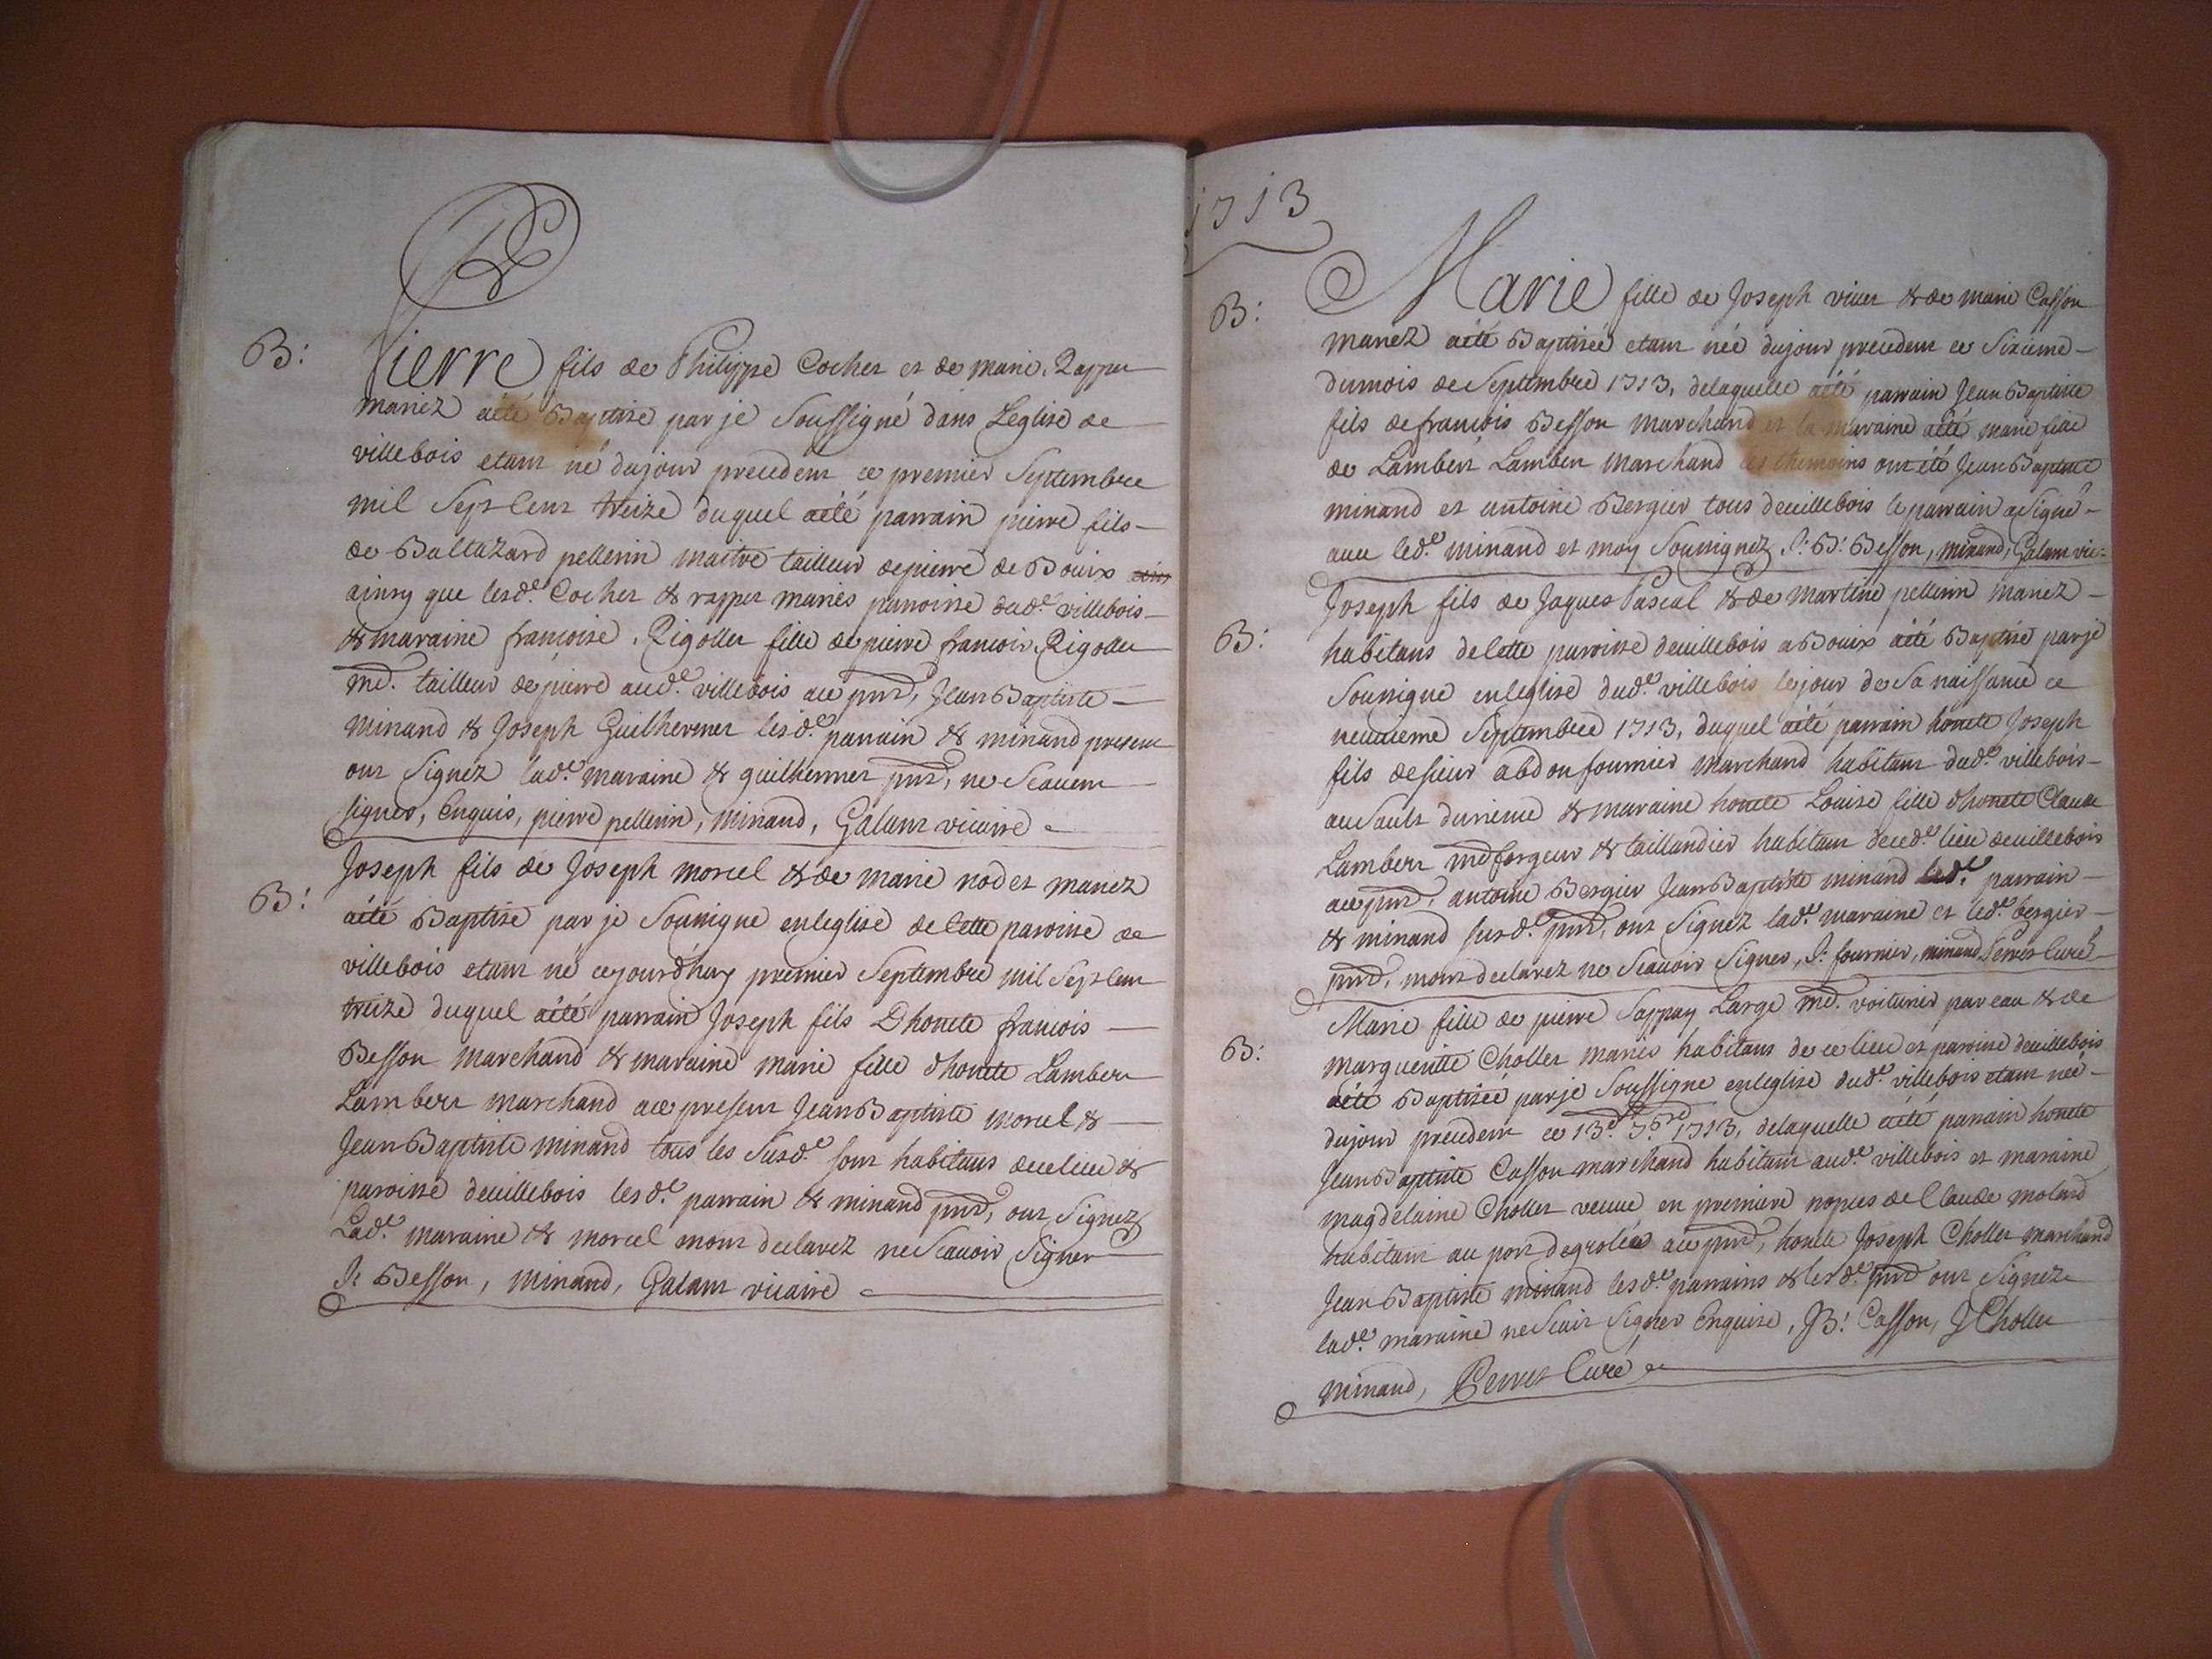 B:
Pierre fils de Philippe Cochet et de marie Rappet
mariez aété Baptise par je Soussigné dans Leglise de
villebois etant né dujour precedent ce premier Septembre
mil Sept Cent treize duquel aété parrain pierre fils
de Baltazard pellerin maitre tailleur depierre de Bouix
ainsy que lesd.e Cochet & rappet mariés parroisse dud.e villebois
& maraine francoise Rigollet fille de pierre francois Rigollet
md. tailleur de pierre aud.e villebois ace pnt, Jean Baptiste
minand & Joseph Guilhermet lesd.e parrain & minand present
ont Signez lad.e maraine & guilhermet pnt, ne Scauent
signer, Enquis, pierre pellerin, minand, Galant vicaire
B:
Joseph fils de Joseph morcel & de marie nodet mariez
aété Baptise par je Soussigne enleglise de Cette paroisse de
villebois etant né cejourdhuy premier Septembre mil Sept Cent
treize duquel aété parrain Joseph fils Dhonete francois
Besson marchand & maraine marie fille dhonete Lambert
Lambert marchand ace present Jean Baptiste morcel &
Jean Baptiste minand tous les Susd.e sont habitans decelieu &
paroisse deuillebois lesd.e parrain & minand pnt, ont Signez
Lad.e maraine & morcel mont declarez ne Scauoir Signer
J: Besson, minand, Galant vicaire
1713
B:
Marie fille de Joseph viuer & de marie Casson
mariez aété Baptisée etant née dujour precedent ce Sixieme
dumois de Septembre 1713, delaquelle aété parrain Jean Baptiste
fils de francois Besson marchand et la maraine aété marie fille
de Lambert Lambert marchand les themoins ont été Jean Baptiste
minand et antoine Bergier tous deuillebois le parrain a Signé
auec led.e minand et moy Soussignez J: B: Besson, minand, Galant vic:
B:
Joseph fils de Jaques Pascal & de martine pellerin mariez
habitans de Cette paroisse deuillebois a Bouix aété Baptisé par je
Soussigne enleglise dud.e villebois lejour de Sa naissance ce
neuuieme Septembre 1713, duquel aété parrain honete Joseph
fils desieur abdon fournier marchand habitant dud.e villebois
au Sault & maraine honete Louise fille dhonete Claude
Lambert md forgeur & taillandier habitant decd.e lieu deuillebois
ace pnt, antoine Bergier Jean Baptiste minand led.e parrain
& minand susd.e pnt, ont Signez lad.e maraine et led.e bergier
pnt, mont declarez ne Scauoir Signer, J: fournier, minand, Perret Curé
B:
Marie fille de pierre Sappay Large md. voiturier par eau & de
margueritte Chollet mariés habitans de ce lieu et paroisse deuillebois
aété Baptiséé par je Soussigne enleglise dud.e villebois etant née
dujour precedent ce 13.e 7bre 1713, delaquelle aété parrain honete
Jean Baptiste Casson marchand habitant aud.e villebois et maraine
magdelaine Chollet veuue en premiere nopces de Claude molard
habitant au port degroléé ace pnt, honete Joseph Chollet marchand
Jean Baptiste minand lesd.e parrains & lesd.e pnt ont Signez
lad.e maraine ne Scait Signer Enquise, JB: Casson, J Chollet
minand, Perret Curé